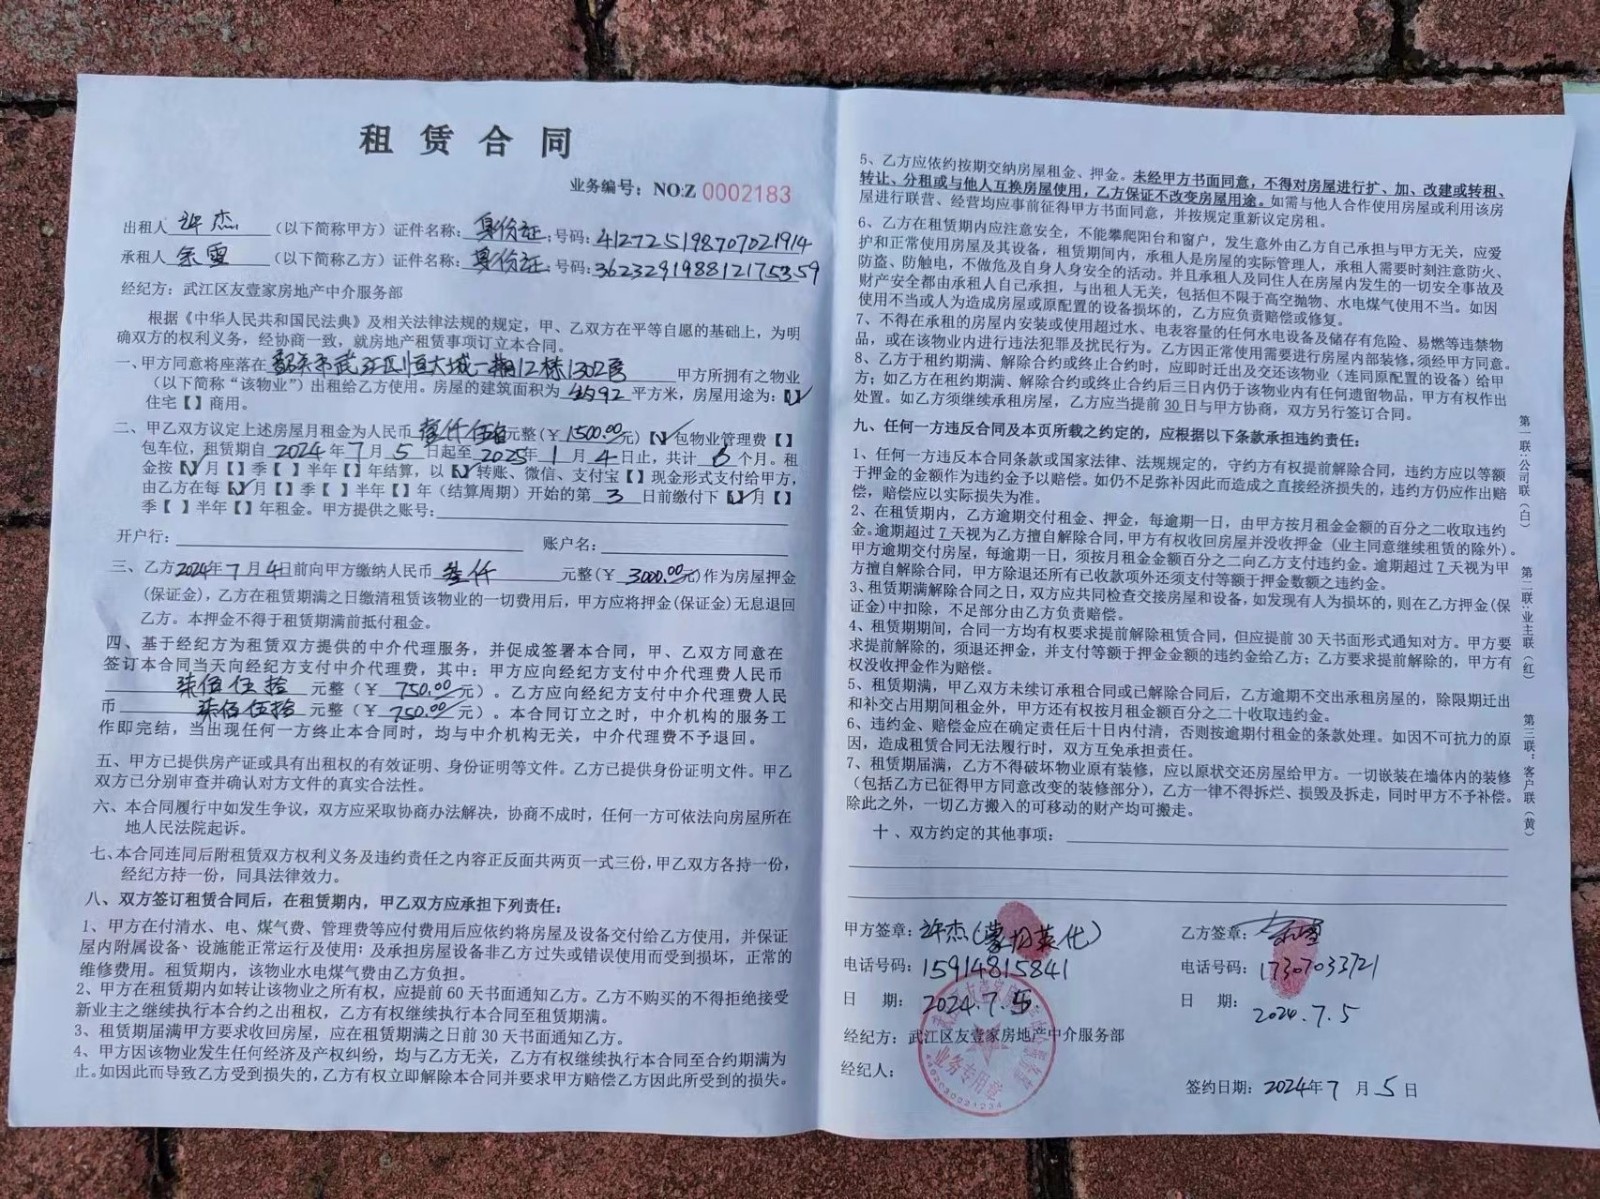 租赁合同
业务编号：NO:Z 0002183
出租人 许杰 （以下简称甲方）证件名称：身份证；号码：412725198707021914
承租人 余雪 （以下简称乙方）证件名称：身份证；号码：362329198812175359
经纪方：武江区友壹家房地产中介服务部
根据《中华人民共和国民法典》及相关法律法规的规定，甲、乙双方在平等自愿的基础上，为明
确双方的权利义务，经协商一致，就房地产租赁事项订立本合同。
一、甲方同意将座落在 韶关市武江区恒大城一期12栋1302房 甲方所拥有之物业
（以下简称“该物业”）出租给乙方使用。房屋的建筑面积为 约92 平方米，房屋用途为：【√】
住宅【】商用。
二、甲乙双方议定上述房屋月租金为人民币 壹仟伍佰元整（￥ 1500.00元）【√】包物业管理费【】
包车位，租赁期自 2024 年 7 月 5 日起至 2025年 1 月 4 日止，共计 6 个月。租
金按【√】月【】季【】半年【】年结算，以【√】转账、微信、支付宝【】现金形式支付给甲方，
由乙方在每【√】月【】季【】半年【】年（结算周期）开始的第 3 日前缴付下【√】月【】
季【】半年【】年租金。甲方提供之账号：
开户行： 账户名：
三、乙方2024年 7 月 4日前向甲方缴纳人民币 叁仟 元整（￥ 3000.00元）作为房屋押金
（保证金），乙方在租赁期满之日缴清租赁该物业的一切费用后，甲方应将押金(保证金)无息退回
乙方。本押金不得于租赁期满前抵付租金。
四、基于经纪方为租赁双方提供的中介代理服务，并促成签署本合同，甲、乙双方同意在
签订本合同当天向经纪方支付中介代理费，其中：甲方应向经纪方支付中介代理费人民币
柒佰伍拾 元整（￥ 750.00元）。乙方应向经纪方支付中介代理费人民
币 柒佰伍拾 元整（￥ 750.00元）。本合同订立之时，中介机构的服务工
作即完结，当出现任何一方终止本合同时，均与中介机构无关，中介代理费不予退回。
五、甲方已提供房产证或具有出租权的有效证明、身份证明等文件。乙方已提供身份证明文件。甲乙
双方已分别审查并确认对方文件的真实合法性。
六、本合同履行中如发生争议，双方应采取协商办法解决，协商不成时，任何一方可依法向房屋所在
地人民法院起诉。
七、本合同连同后附租赁双方权利义务及违约责任之内容正反面共两页一式三份，甲乙双方各持一份，
经纪方持一份，同具法律效力。
八、双方签订租赁合同后，在租赁期内，甲乙双方应承担下列责任：
1、甲方在付清水、电、煤气费、管理费等应付费用后应依约将房屋及设备交付给乙方使用，并保证
屋内附属设备、设施能正常运行及使用；及承担房屋设备非乙方过失或错误使用而受到损坏，正常的
维修费用。租赁期内，该物业水电煤气费由乙方负担。
2、甲方在租赁期内如转让该物业之所有权，应提前60天书面通知乙方。乙方不购买的不得拒绝接受
新业主之继续执行本合约之出租权，乙方有权继续执行本合同至租赁期满。
3、租赁期届满甲方要求收回房屋，应在租赁期满之日前30天书面通知乙方。
4、甲方因该物业发生任何经济及产权纠纷，均与乙方无关，乙方有权继续执行本合同至合约期满为
止。如因此而导致乙方受到损失的，乙方有权立即解除本合同并要求甲方赔偿乙方因此所受到的损失。
5、乙方应依约按期交纳房屋租金、押金。未经甲方书面同意，不得对房屋进行扩、加、改建或转租、
转让、分租或与他人互换房屋使用，乙方保证不改变房屋用途。如需与他人合作使用房屋或利用该房
屋进行联营、经营均应事前征得甲方书面同意，并按规定重新议定房租。
6、乙方在租赁期内应注意安全，不能攀爬阳台和窗户，发生意外由乙方自己承担与甲方无关，应爱
护和正常使用房屋及其设备，租赁期间内，承租人是房屋的实际管理人，承租人需要时刻注意防火、
防盗、防触电，不做危及自身人身安全的活动。并且承租人及同住人在房屋内发生的一切安全事故及
财产安全都由承租人自己承担，与出租人无关，包括但不限于高空抛物、水电煤气使用不当。如因
使用不当或人为造成房屋或原配置的设备损坏的，乙方应负责赔偿或修复。
7、不得在承租的房屋内安装或使用超过水、电表容量的任何水电设备及储存有危险、易燃等违禁物
品，或在该物业内进行违法犯罪及扰民行为。乙方因正常使用需要进行房屋内部装修，须经甲方同意。
8、乙方于租约期满、解除合约或终止合约时，应即时迁出及交还该物业（连同原配置的设备）给甲
方；如乙方在租约期满、解除合约或终止合约后三日内仍于该物业内有任何遗留物品，甲方有权作出
处置。如乙方须继续承租房屋，乙方应当提前30日与甲方协商，双方另行签订合同。
九、任何一方违反本合同及本页所载之约定的，应根据以下条款承担违约责任：
1、任何一方违反本合同条款或国家法律、法规规定的，守约方有权提前解除合同，违约方应以等额
于押金的金额作为违约金予以赔偿。如仍不足弥补因此而造成之直接经济损失的，违约方仍应作出赔
偿，赔偿应以实际损失为准。
2、在租赁期内，乙方逾期交付租金、押金，每逾期一日，由甲方按月租金金额的百分之二收取违约
金。逾期超过7天视为乙方擅自解除合同，甲方有权收回房屋并没收押金（业主同意继续租赁的除外）。
甲方逾期交付房屋，每逾期一日，须按月租金金额百分之二向乙方支付违约金。逾期超过7天视为甲
方擅自解除合同，甲方除退还所有已收款项外还须支付等额于押金数额之违约金。
3、租赁期满解除合同之日，双方应共同检查交接房屋和设备，如发现有人为损坏的，则在乙方押金(保
证金)中扣除，不足部分由乙方负责赔偿。
4、租赁期期间，合同一方均有权要求提前解除租赁合同，但应提前30天书面形式通知对方。甲方要
求提前解除的，须退还押金，并支付等额于押金金额的违约金给乙方；乙方要求提前解除的，甲方有
权没收押金作为赔偿。
5、租赁期满，甲乙双方未续订承租合同或已解除合同后，乙方逾期不交出承租房屋的，除限期迁出
和补交占用期间租金外，甲方还有权按月租金额百分之二十收取违约金。
6、违约金、赔偿金应在确定责任后十日内付清，否则按逾期付租金的条款处理。如因不可抗力的原
因，造成租赁合同无法履行时，双方互免承担责任。
7、租赁期届满，乙方不得破坏物业原有装修，应以原状交还房屋给甲方。一切嵌装在墙体内的装修
（包括乙方已征得甲方同意改变的装修部分），乙方一律不得拆烂、损毁及拆走，同时甲方不予补偿。
除此之外，一切乙方搬入的可移动的财产均可搬走。
十、双方约定的其他事项：
甲方签章：许杰(蒙招英代) 乙方签章：余雪
电话号码：15914815841 电话号码：17307033721
日 期：2024.7.5 日 期：2024.7.5
经纪方：武江区友壹家房地产中介服务部
业务专用章
经纪人：
签约日期：2024年 7 月 5 日
第一联：公司联（白）
第二联：业主联（红）
第三联：客户联（黄）